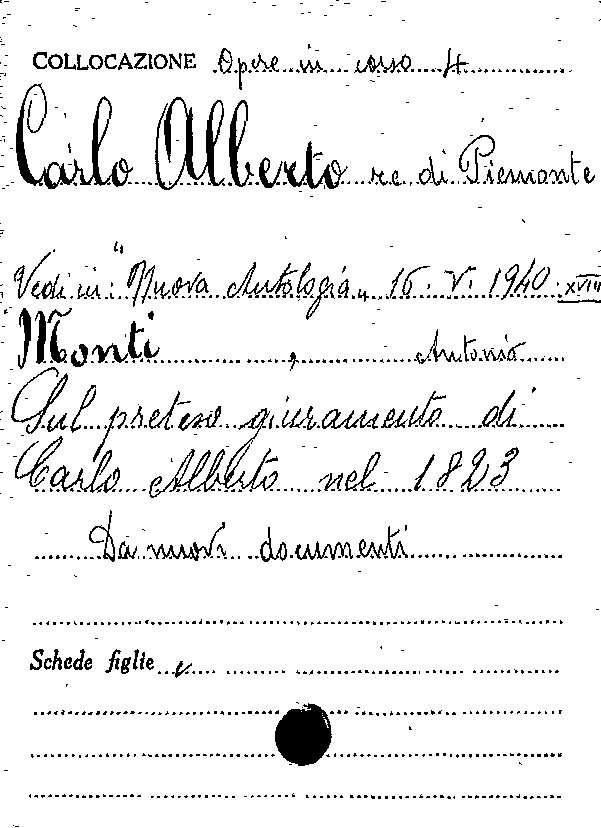 COLLOCAZIONE Opere in corso 4
Carlo Alberto re di Piemonte
Vedi in: "Nuova Antologia„ 16. V. 1940. XVIII
Monti, Antonio
Sul preteso giuramento di
Carlo Alberto nel 1823
Da nuovi documenti
Schede figlie